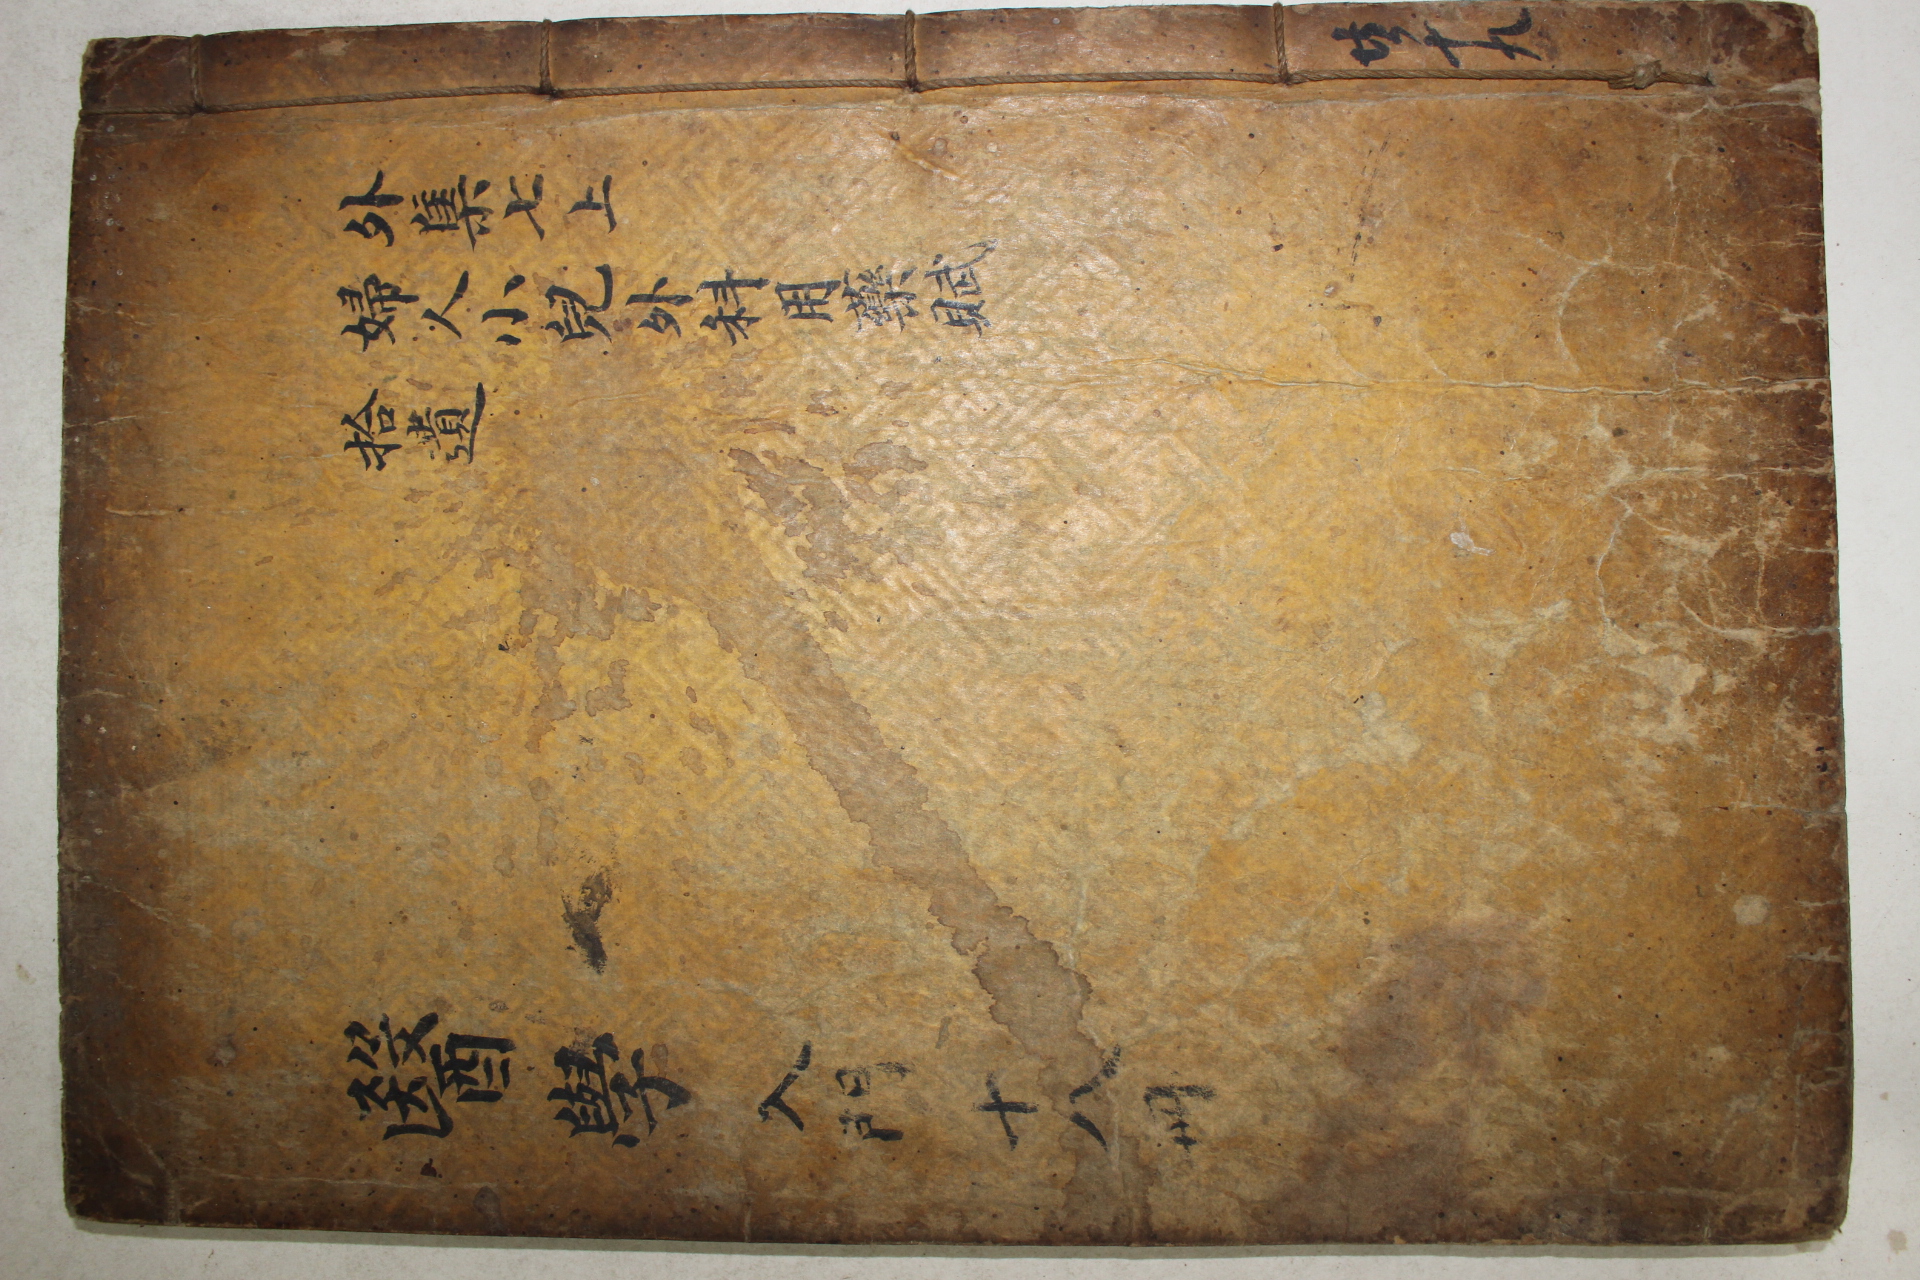 醫學入門 十八
外集七上
婦人小兒外科用藥賦
拾遺
共十九